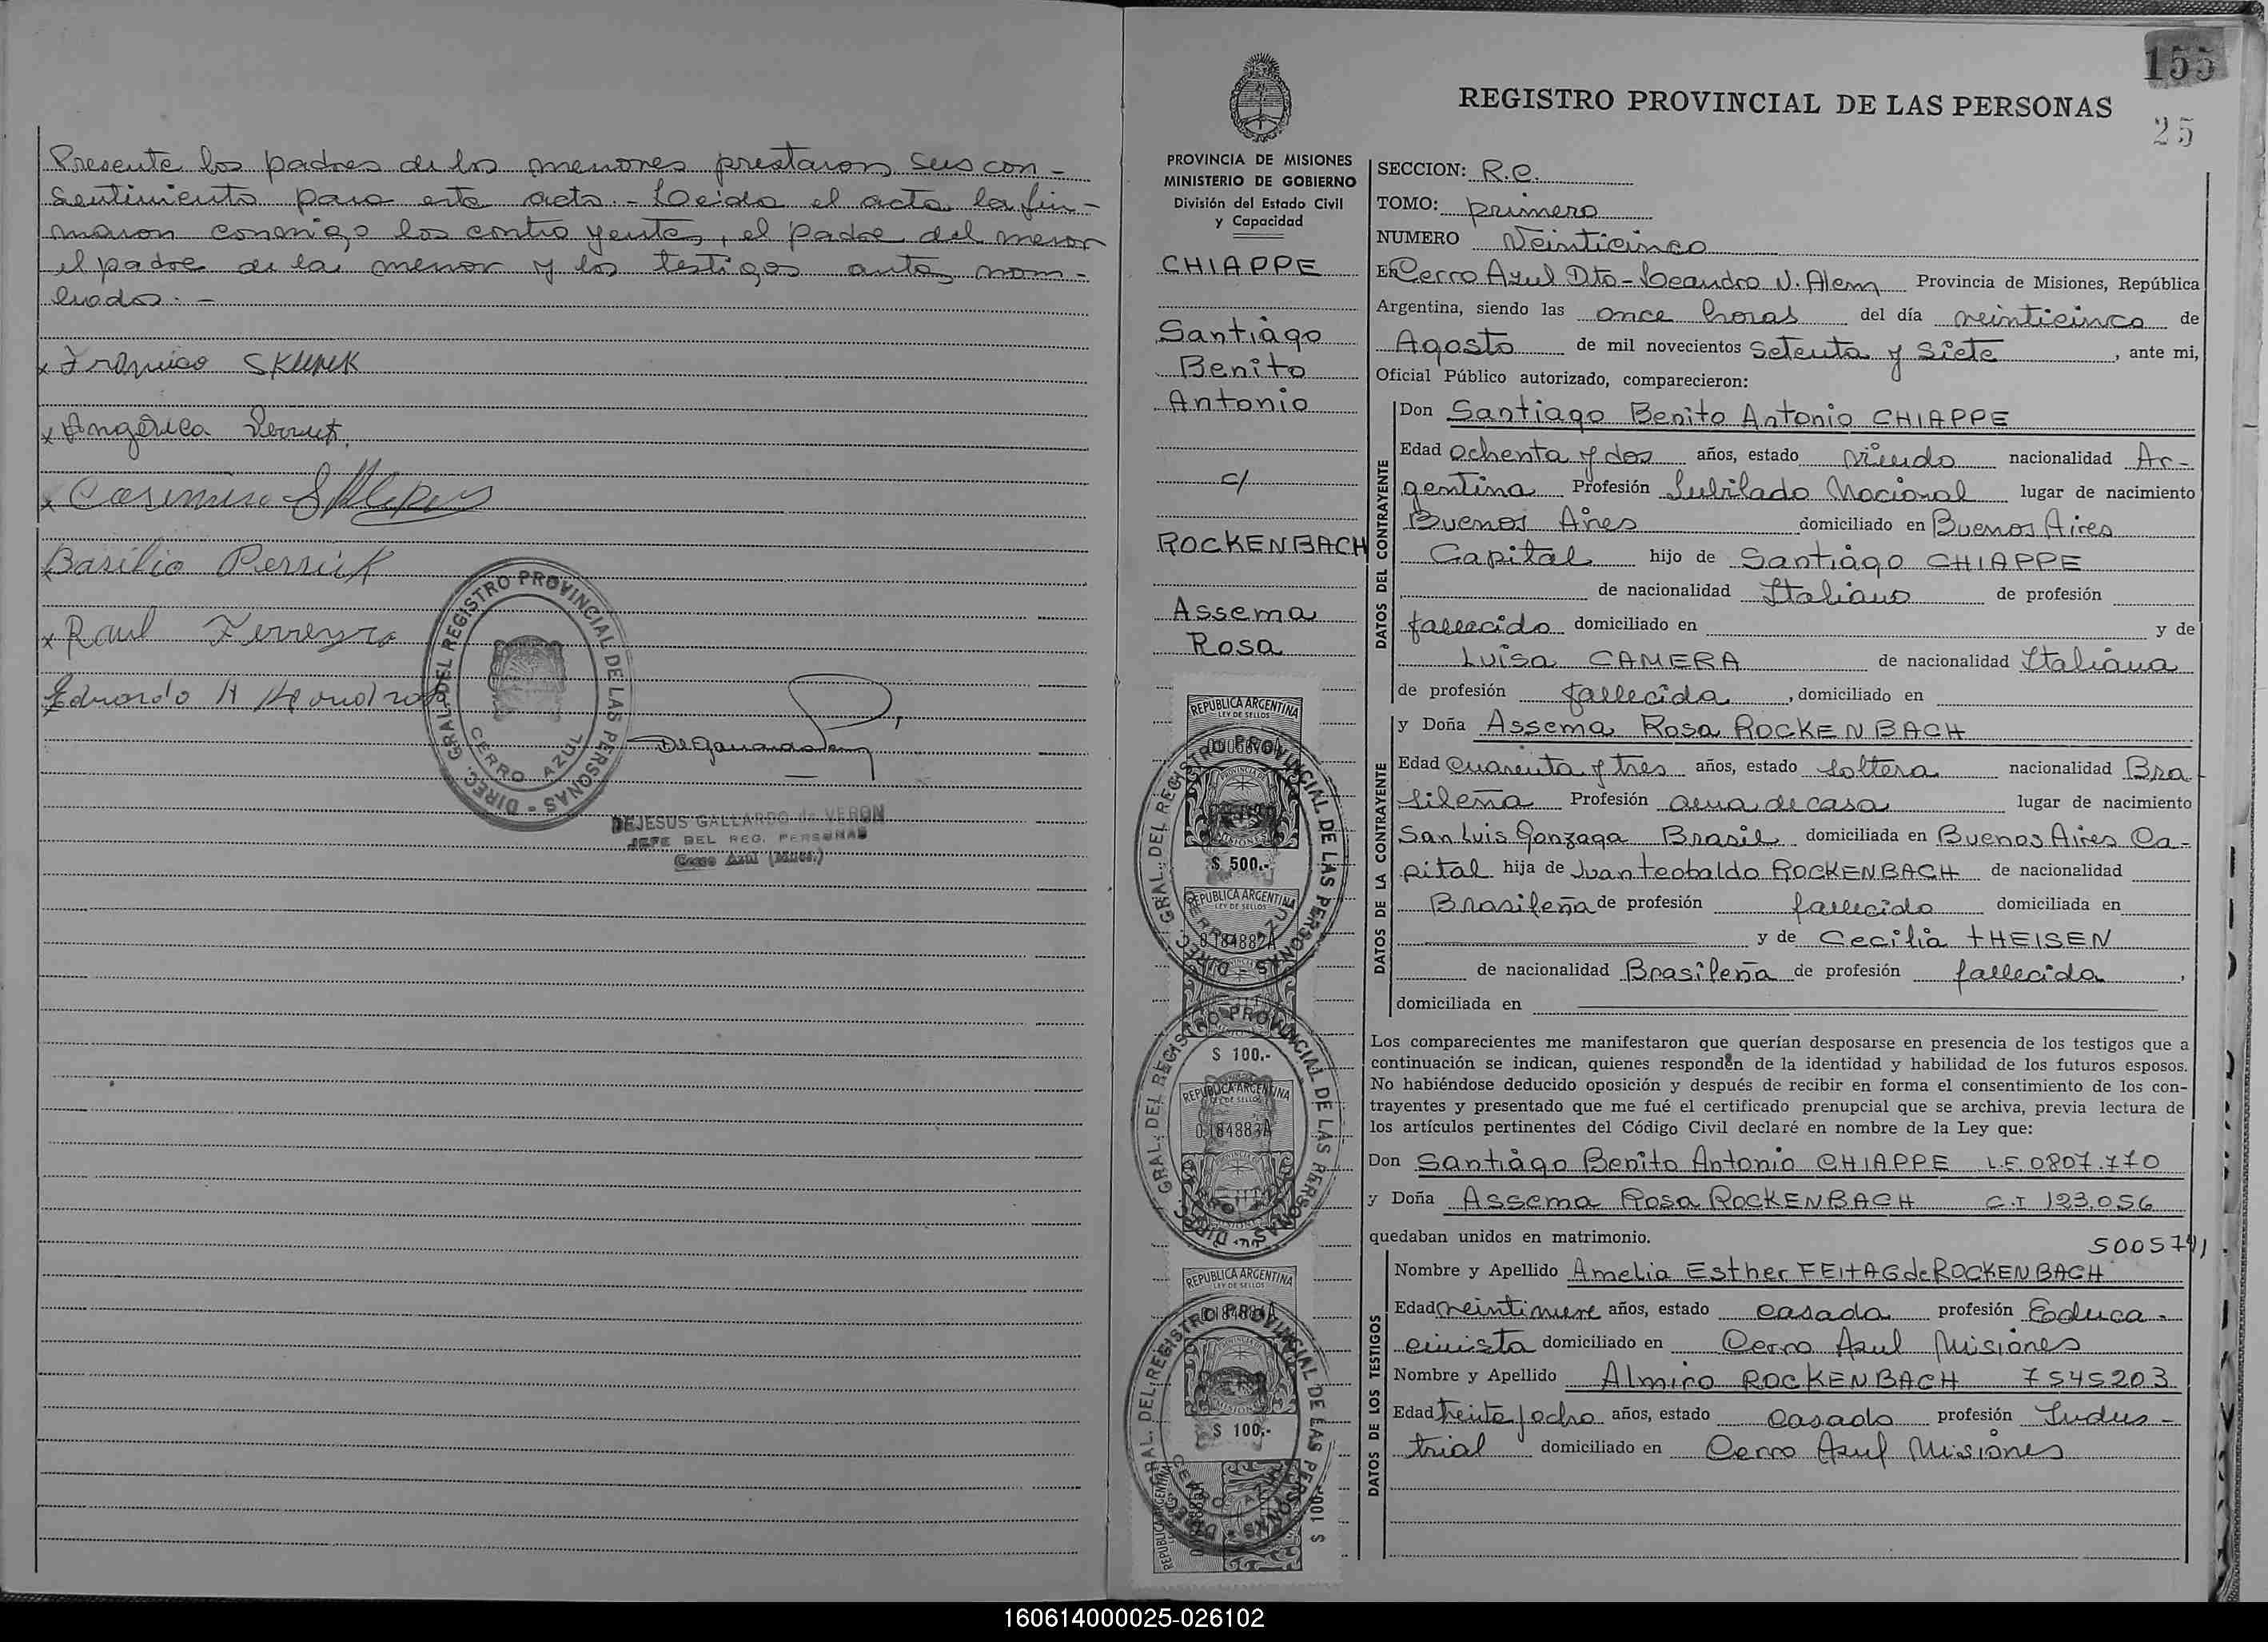 Presente los padres de los menores prestaron sus con-
sentimiento para este acto.- Leida el acta la fir-
maron conmigo los contrayentes, el padre del menor
el padre de la menor y los testigos antes nom-
brados.-
x Angélica
x Casimiro
Basilio Persuik
x Raul Ferreyra
Eduardo H
DIREC. GRAL. DEL REGISTRO PROVINCIAL DE LAS PERSONAS -
CERRO AZUL
DEJESUS GALLARDO de VERON
JEFE DEL REG. PERSONAS
Cerro Azul (Mnes.)
155
REGISTRO PROVINCIAL DE LAS PERSONAS
25
PROVINCIA DE MISIONES
MINISTERIO DE GOBIERNO
División del Estado Civil
y Capacidad
CHIAPPE
Santiago
Benito
Antonio
c/
ROCKENBACH
Assema
Rosa
REPUBLICA ARGENTINA
LEY DE SELLOS
$ 500.-
REPUBLICA ARGENTINA
LEY DE SELLOS
0184882A
$ 100.-
REPUBLICA ARGENTINA
LEY DE SELLOS
0184883A
REPUBLICA ARGENTINA
LEY DE SELLOS
0184884A
$ 100.-
REPUBLICA ARGENTINA
$ 100.-
DIREC. GRAL. DEL REGISTRO PROVINCIAL DE LAS PERSONAS -
CERRO AZUL
DIREC. GRAL. DEL REGISTRO PROVINCIAL DE LAS PERSONAS
DIREC. GRAL. DEL REGISTRO PROVINCIAL DE LAS PERSONAS -
CERRO AZUL
SECCION: R.C.
TOMO: primero
NUMERO Veinticinco
En Cerro Azul Dto-Leandro N. Alem Provincia de Misiones, República
Argentina, siendo las once horas del día veinticinco de
Agosto de mil novecientos Setenta y Siete, ante mi,
Oficial Público autorizado, comparecieron:
DATOS DEL CONTRAYENTE
Don Santiago Benito Antonio CHIAPPE
Edad Ochenta y dos años, estado viudo nacionalidad Ar-
gentina Profesión Jubilado Nacional lugar de nacimiento
Buenos Aires domiciliado en Buenos Aires
Capital hijo de Santiago CHIAPPE
de nacionalidad Italiano de profesión
fallecido domiciliado en y de
Luisa CAMERA de nacionalidad Italiana
de profesión fallecida, domiciliado en
DATOS DE LA CONTRAYENTE
y Doña Assema Rosa ROCKENBACH
Edad Cuarenta y tres años, estado soltera nacionalidad Bra-
sileña Profesión ama de casa lugar de nacimiento
San Luis Gonzaga Brasil domiciliada en Buenos Aires Ca-
pital hija de Juan teobaldo ROCKENBACH de nacionalidad
Brasileña de profesión fallecido domiciliada en
y de Cecilia tHEISEN
de nacionalidad Brasileña de profesión fallecida,
domiciliada en
Los comparecientes me manifestaron que querían desposarse en presencia de los testigos que a
continuación se indican, quienes responden de la identidad y habilidad de los futuros esposos.
No habiéndose deducido oposición y después de recibir en forma el consentimiento de los con-
trayentes y presentado que me fué el certificado prenupcial que se archiva, previa lectura de
los artículos pertinentes del Código Civil declaré en nombre de la Ley que:
Don Santiago Benito Antonio CHIAPPE L.E. 0807.770
y Doña Assema Rosa ROCKENBACH C.I 123.056
quedaban unidos en matrimonio.
DATOS DE LOS TESTIGOS
Nombre y Apellido Amelia Esther FEItAG de ROCKENBACH
Edad veintinueve años, estado casada profesión Educa-
cinista domiciliado en Cerro Azul Misiones
Nombre y Apellido Almiro ROCKENBACH 7545203
Edad treinta y ocho años, estado casado profesión Indus-
trial domiciliado en Cerro Azul Misiones
160614000025-026102